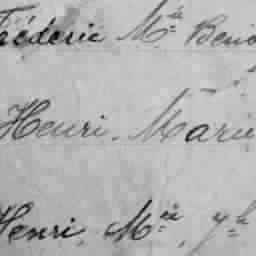 Frédéric Mie Beno
Henri. Marie
Henri, Mie, Jh